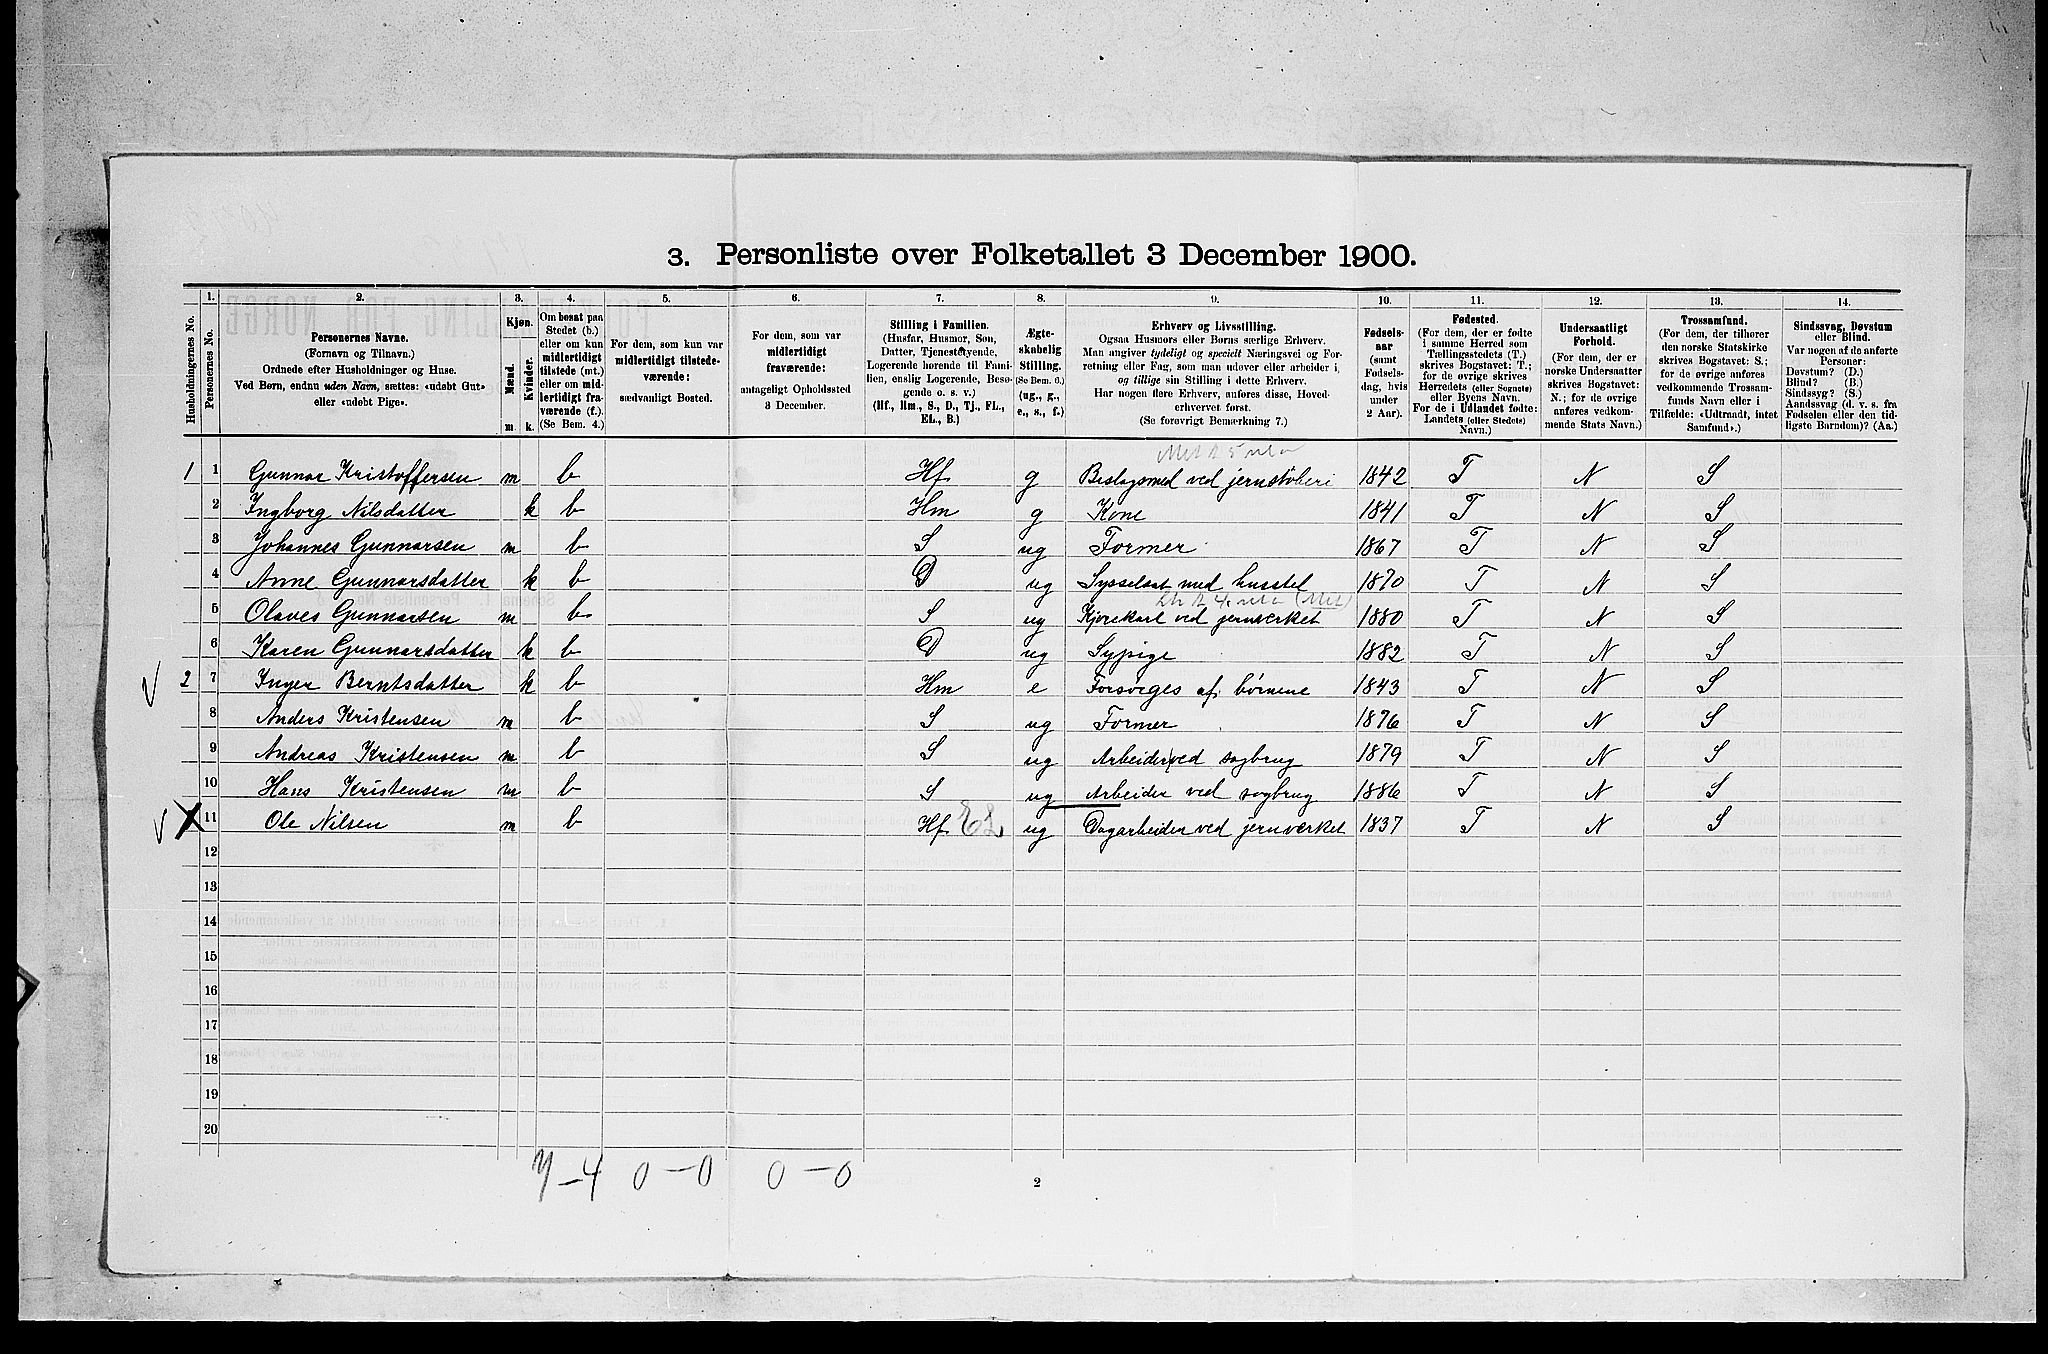 3. Personliste over Folketallet 3 December 1900.
1. 2. 3. 4. 5. 6. 7. 8. 9. 10. 11. 12. 13. 14.
Husholdningernes No.
Personernes No.
Personernes Navne.
(Fornavn og Tilnavn.)
Ordnede efter Husholdninger og Huse.
Ved Børn, endnu uden Navn, sættes: «udøbt Gut»
eller «udøbt Pige».
Kjøn.
Mænd.
Kvinder.
m. k.
Om bosat paa
Stedet (b.)
eller om kun
midlertidigt
tilstede (mt.)
eller om mid-
lertidigt fra-
værende (f.).
(Se Bem. 4.)
For dem, som kun var
midlertidigt tilstede-
værende:
sædvanligt Bosted.
For dem, som var
midlertidigt
fraværende:
antageligt Opholdssted
3 December.
Stilling i Familien.
(Husfar, Husmor, Søn,
Datter, Tjenestetyende,
Logerende hørende til Fami-
lien, enslig Logerende, Besø-
gende o. s. v.)
(Hf., Hm., S., D., Tj., FL.,
EL., B.)
Ægte-
skabelig
Stilling.
(Se Bem. 6.)
(ug., g.,
e., s., f.)
Erhverv og Livsstilling.
Ogsaa Husmors eller Børns særlige Erhverv.
Man angiver tydeligt og specielt Næringsvei og For-
retning eller Fag, som man udøver eller arbeider i,
og tillige sin Stilling i dette Erhverv.
Har nogen flere Erhverv, anføres disse, Hoved-
erhvervet først.
(Se forøvrigt Bemærkning 7.)
Fødsels-
aar
(samt
Fødsels-
dag, hvis
under
2 Aar).
Fødested.
(For dem, der er fødte
i samme Herred som
Tællingsstedets (T.)
skrives Bogstavet: T.;
for de øvrige skrives
Herredets (eller Sognets)
eller Byens Navn.
For de i Udlandet fødte:
Landets (eller Stedets)
Navn.)
Undersaatligt
Forhold.
(For dem, der er
norske Undersaatter
skrives Bogstavet:
N.; for de øvrige
anføres vedkom-
mende Stats Navn.)
Trossamfund.
(For dem, der tilhører
den norske Statskirke
skrives Bogstavet: S.;
for de øvrige anføres
vedkommende Trossam-
funds Navn eller i
Tilfælde: «Udtraadt, intet
Samfund».)
Sindssvag, Døvstum
eller Blind.
Var nogen af de anførte
Personer:
Døvstum? (D.)
Blind? (B.)
Sindssyg? (S.)
Aandssvag (d. v. s. fra
Fødselen eller den tid-
ligste Barndom)? (Aa.)
1 1 Gunnar Kristoffersen m b Hf g Beslagsmed ved jernstøberi 1842 T N S
2 Ingborg Nilsdatter k b Hm g Kone 1841 T N S
3 Johannes Gunnarsen m b S ug Former 1867 T N S
4 Anne Gunnarsdatter k b D ug Sysselsat med husstel 1870 T N S
5 Olaves Gunnarsen m b S ug Kjørekarl ved jernverket 1880 T N S
6 Karen Gunnarsdatter k b D ug Sypige 1882 T N S
2 7 Inger Berntsdatter k b Hm e Forsørges af børnene 1843 T N S
8 Anders Kristensen m b S ug Former 1876 T N S
9 Andreas Kristensen m b S ug Arbeider ved sagbrug 1879 T N S
10 Hans Kristensen m b S ug Arbeider ved sagbrug 1886 T N S
11 Ole Nilsen m b Hf EL ug Dagarbeider ved jernverket 1837 T N S
12
13
14
15
16
17
18
19
20
7 – 4 0 – 0 0 – 0
2